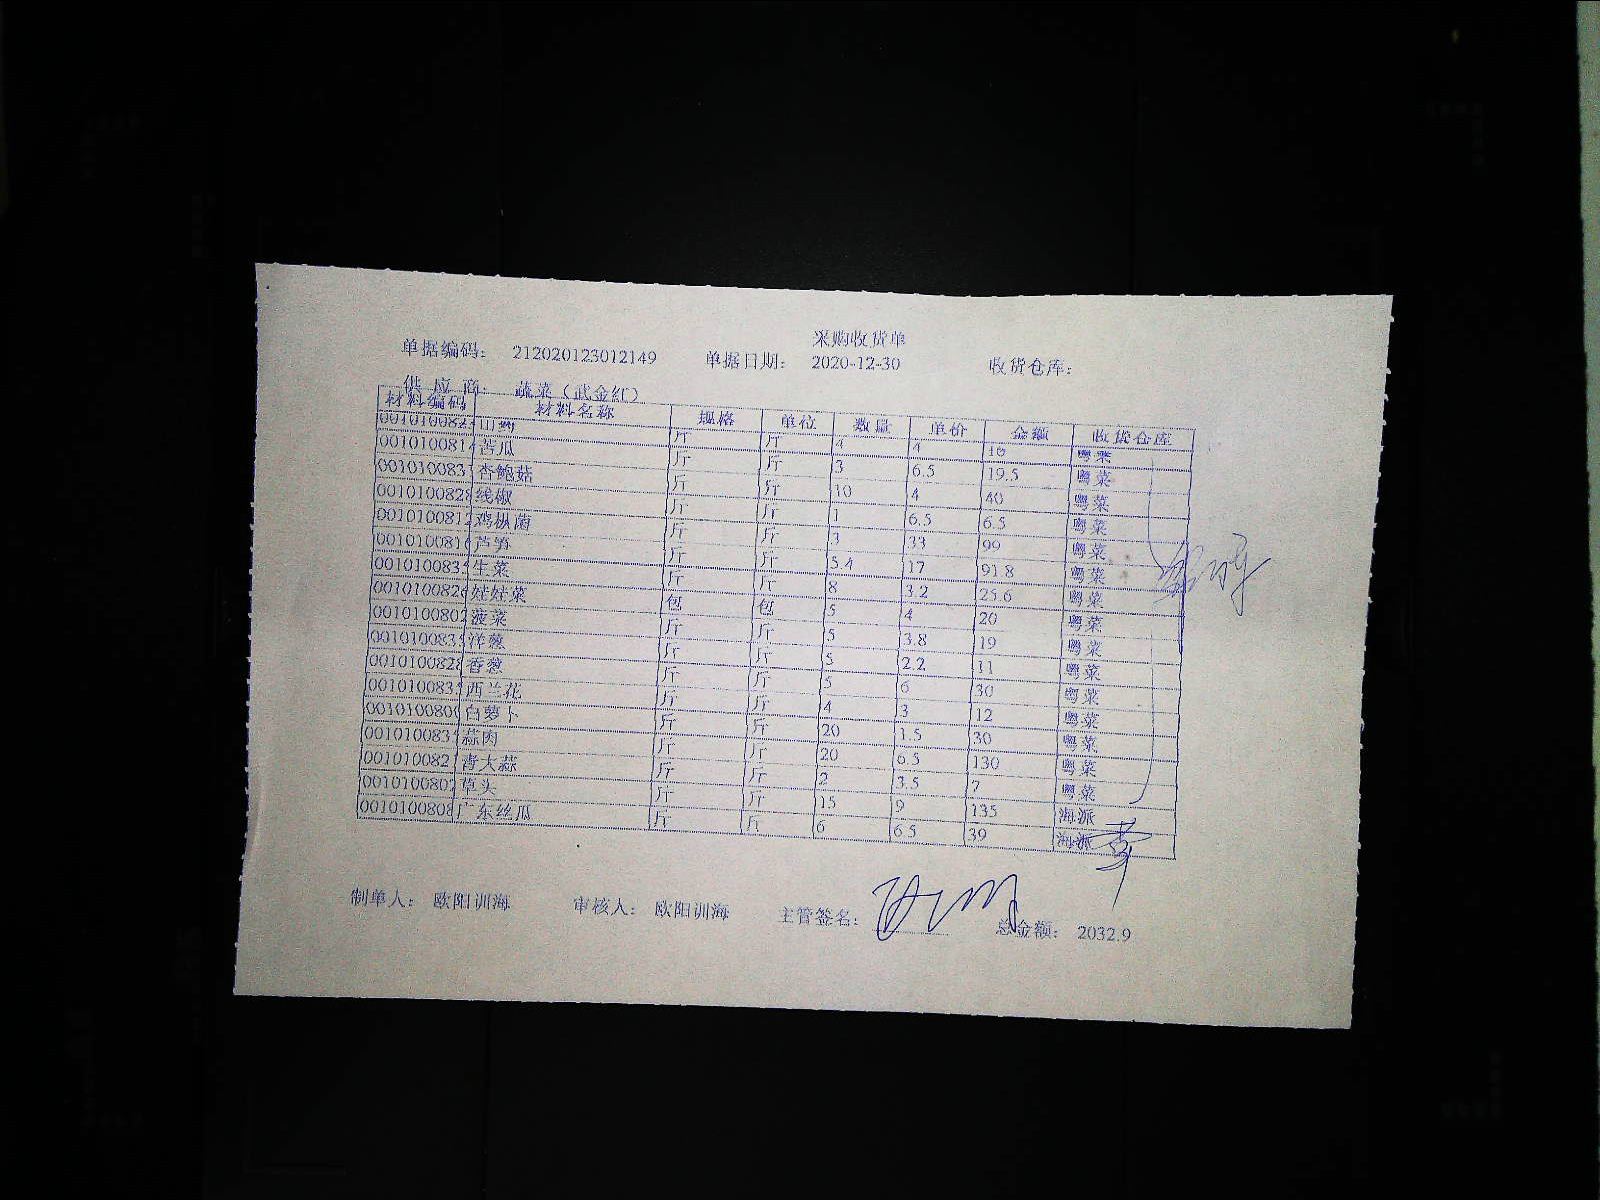 采购收货单
单据编码： 212020123012149 单据日期： 2020-12-30 收货仓库：
供 应 商： 蔬菜（武金红）
材料编码 材料名称 规格 单位 数量 单价 金额 收货仓库
001010082 山药 斤 斤 4 4 16 粤菜
0010100814 苦瓜 斤 斤 3 6.5 19.5 粤菜
001010083 杏鲍菇 斤 斤 10 4 40 粤菜
0010100828 线椒 斤 斤 1 6.5 6.5 粤菜
0010100812 鸡枞菌 斤 斤 3 33 99 粤菜
0010100816 芦笋 斤 斤 5.4 17 91.8 粤菜
001010083 生菜 斤 斤 8 3.2 25.6 粤菜
0010100826 娃娃菜 包 包 5 4 20 粤菜
001010080 菠菜 斤 斤 5 3.8 19 粤菜
001010083 洋葱 斤 斤 5 2.2 11 粤菜
0010100828 香葱 斤 斤 5 6 30 粤菜
001010083 西兰花 斤 斤 4 3 12 粤菜
001010080 白萝卜 斤 斤 20 1.5 30 粤菜
001010083 蒜肉 斤 斤 20 6.5 130 粤菜
001010082 青大蒜 斤 斤 2 3.5 7 粤菜
001010080 草头 斤 斤 15 9 135 海派
0010100808 广东丝瓜 斤 斤 6 6.5 39 海派
制单人： 欧阳训海 审核人： 欧阳训海 主管签名： 总金额： 2032.9